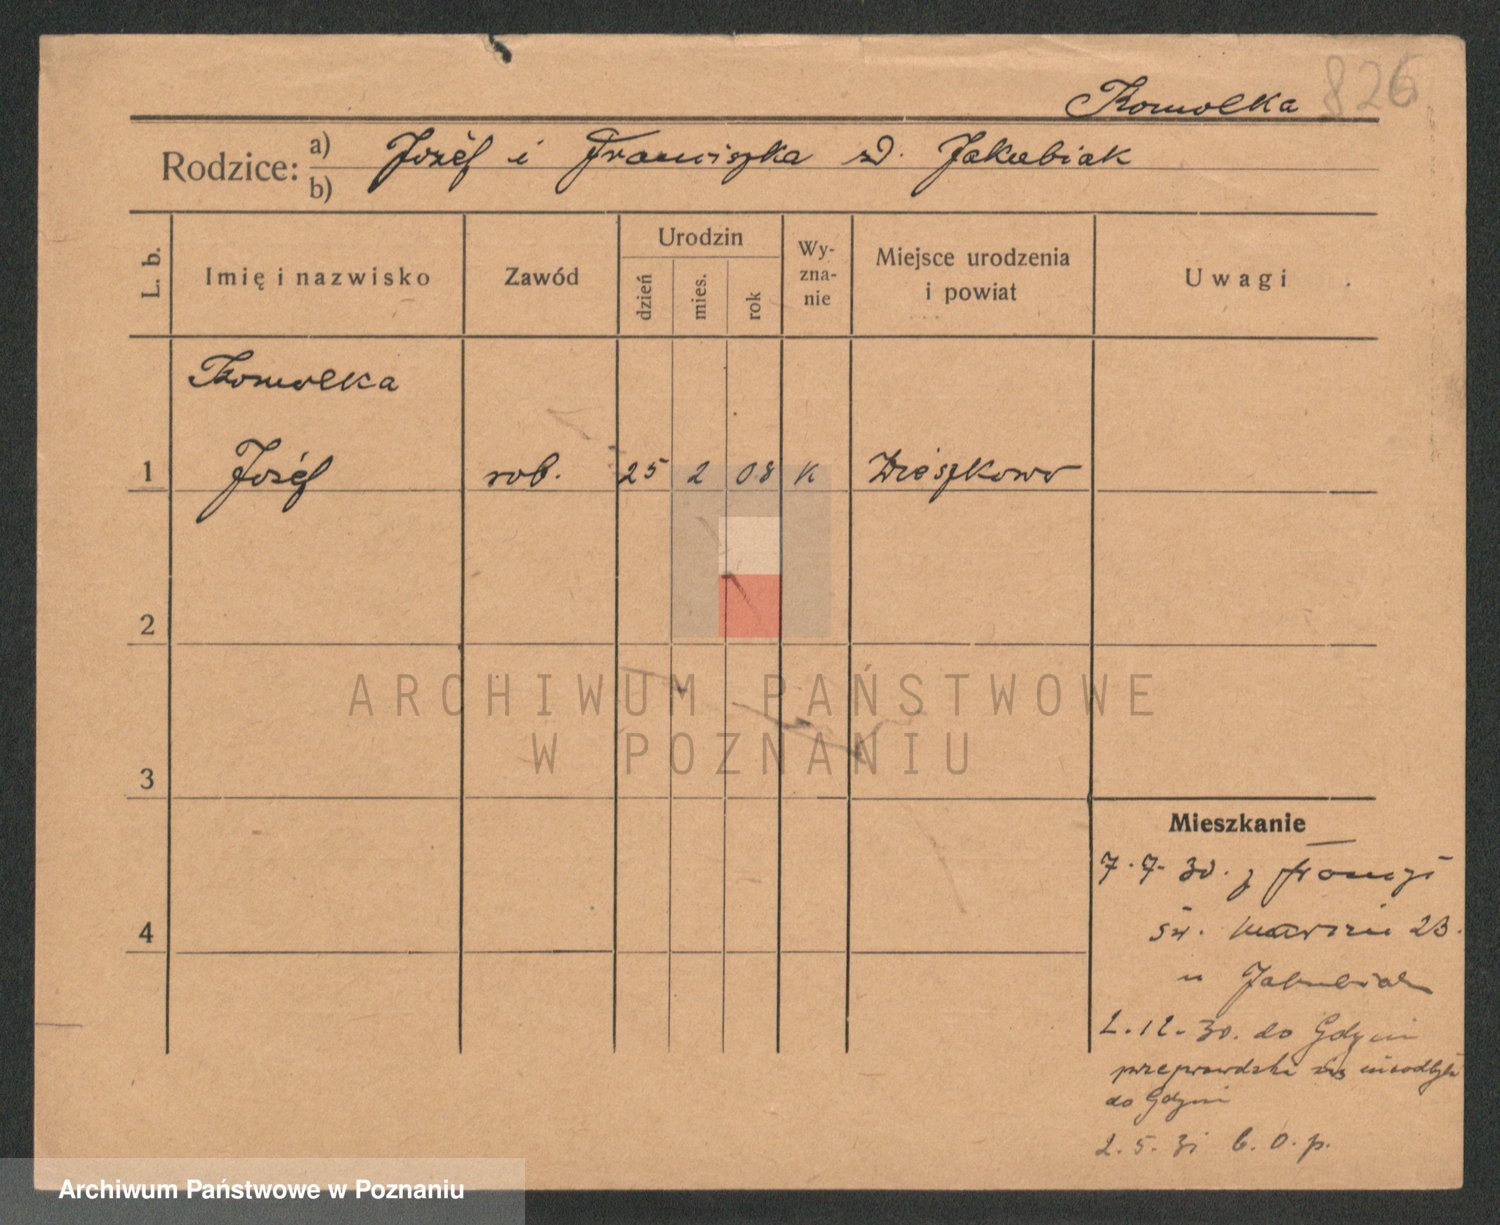 826
Komolka
Rodzice: a) Józéf i Franciszka zd. Jakubiak
b)
L. b.
Imię i nazwisko
Zawód
Urodzin
dzień
mies.
rok
Wy-
zna-
nie
Miejsce urodzenia
i powiat
Uwagi
Komolka
1 Józéf rob. 25 2 08 K
2
3
4
ARCHIWUM PAŃSTWOWE
W POZNANIU
Mieszkanie
7.7.30. z Francji
św. Marcin 23.
u Jakubiak
2.12.30. do Gdyni
do Gdyni
2.5.31 b.o.p.
Archiwum Państwowe w Poznaniu